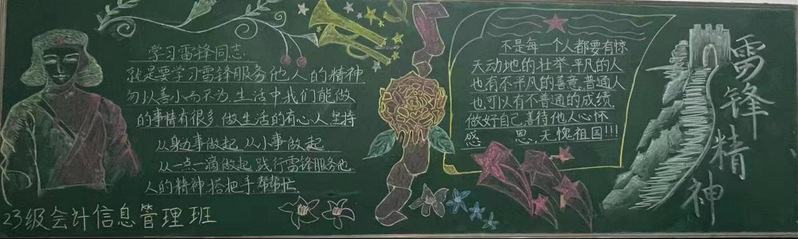 学习雷锋同志,
就是要学习雷锋服务他人的精神
勿以善小而不为.生活中我们能做
的事情有很多.做生活的有心人.坚持
从身边事做起.从小事做起.
从一点一滴做起.践行雷锋服务他
人的精神.搭把手.帮帮忙.
23级会计信息管理班
不是每一个人都要有惊
天动地的壮举.平凡的人
也有不平凡的善意.普通人
也可以有不普通的成绩.
做好自己.善待他人.心怀
感恩.无愧祖国!!!
雷锋精神